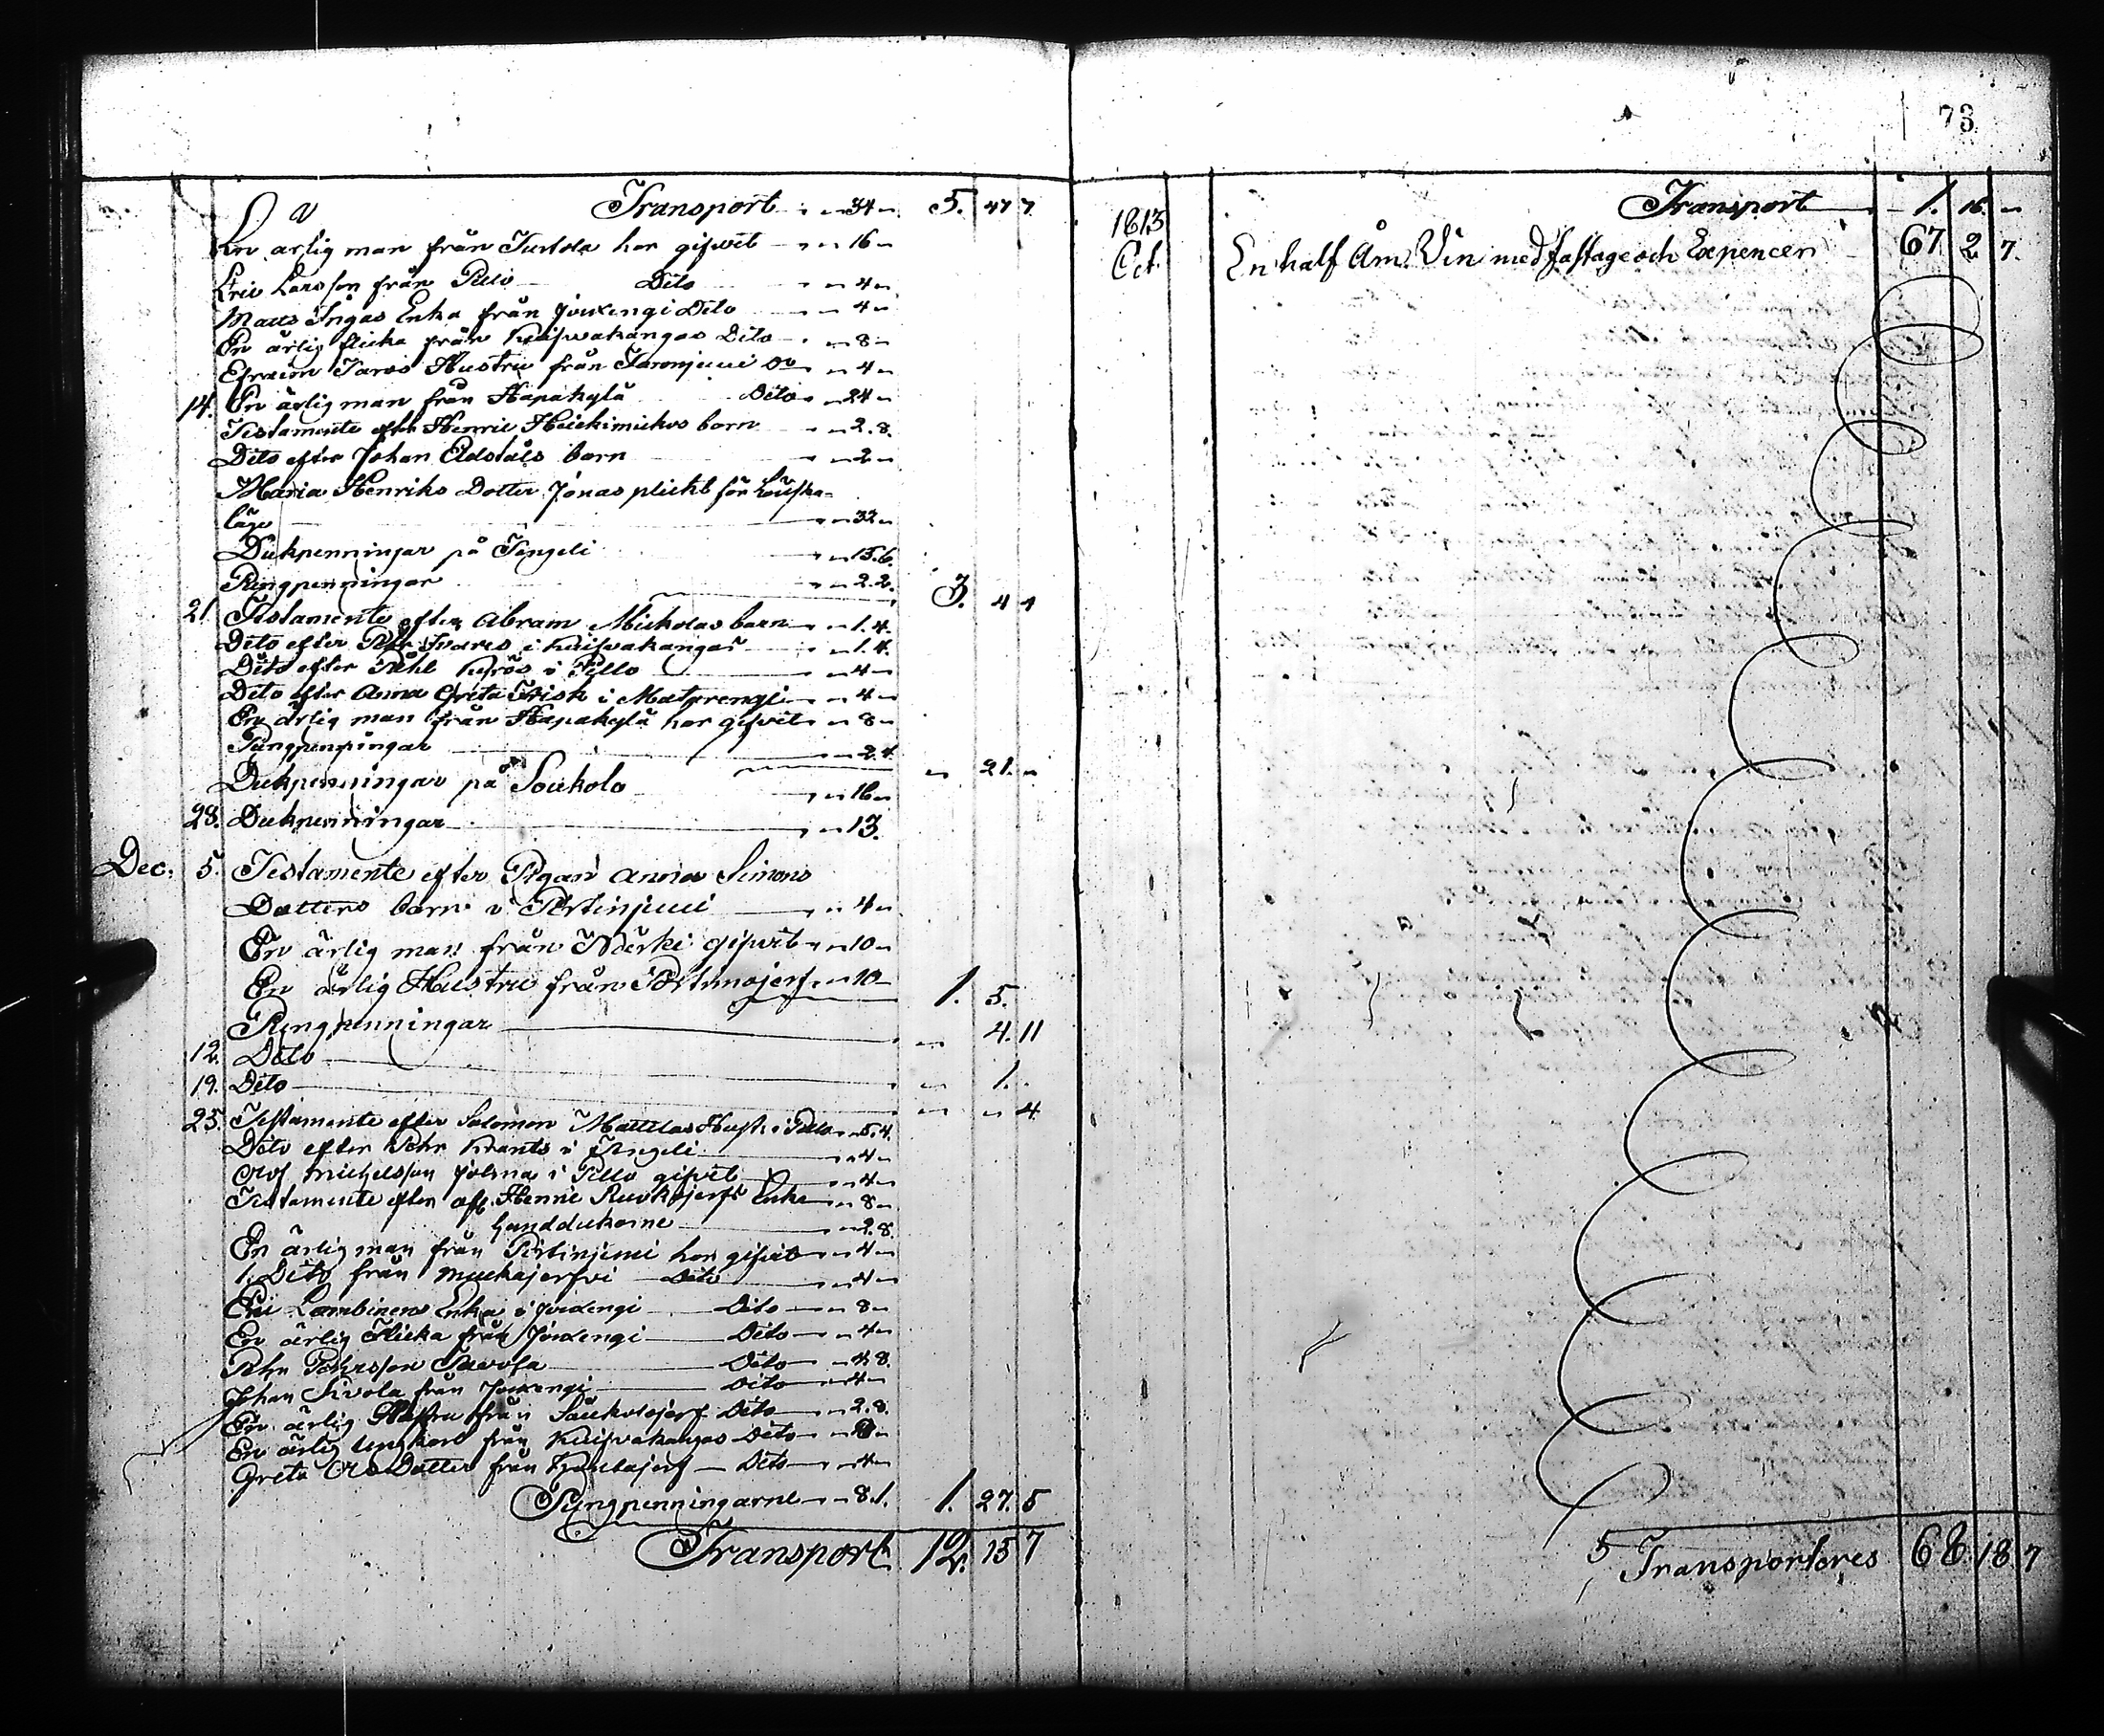 Transport 34 5. 47 7
En ärlig man från Turtola har gifvit 16
Eric Larsson från Pello Dito 4
Matts Ingas Enka från Jouxengi Dito 4
En ärlig flicka från Kuifvakangas Dito 8
Efraim Hustru från Do 4
14. En ärlig man från Hapakylä Dito 24
Testamente efter Henric Heickimickos barn 2. 8.
Dito efter Johan barn 2
Maria Henriks Dotter Jonas plickt för
läge 32
Dukpenningar på Tengeli 15. 6.
Pungpenningar 2. 2. 3. 4 4
21. Testamente efter Abram Mickolas barn 1. 4.
Dito efter i Kuifvakangas 1. 4.
Dito efter i Pello 4
Dito efter Anna Greta Frisk i Matarengi 4
En ärlig man från Hapakylä har gifvit 8
Pungpenningar 2. 4. 21.
Dukpenningar på Soukolo 16
28. Dukpenningar 13.
Dec. 5. Testamente efter Pigan Anna Simons
Dotters barn i Pirtinjemi 4
En ärlig man från Närki gifvit 10
En ärlig Hustru från Portimojerf 10 1. 5.
Pungpenningar 4. 11
12. Dito 1.
19. Dito 4
25. Testamente efter Salomon Mattilas Hust. i Pello 5. 4.
Dito efter Pehr Krants i Tengeli 4
Olof Michelsson i Pello gifvit 4
Testamente efter afl. Henric Enka 8
handdukarne 2. 8.
En ärlig man från Pirtinjemi har gifvit 4
1. Dito från Muckajerfvi Dito 4
Eric Lambinens Enka i Jouxengi Dito 8
En ärlig Flicka från Jouxengi Dito 4
Pehr Pehrsson Dito 4. 8.
Johan Sirola från Jouxengi Dito 4
En ärlig Hustru från Soukolojerf Dito 2. 8.
En ärlig ungkarl från Kuifvakangas Dito
Greta Ols Dotter från Dito 4
Pungpenningarne 8. 1. 1. 27. 5
Transport 12. 15 7
73
Transport 1. 16.
1813
Oct. En half Åm Vin med fastage och Expencer 67 2 7.
Transporteres 68. 18. 7